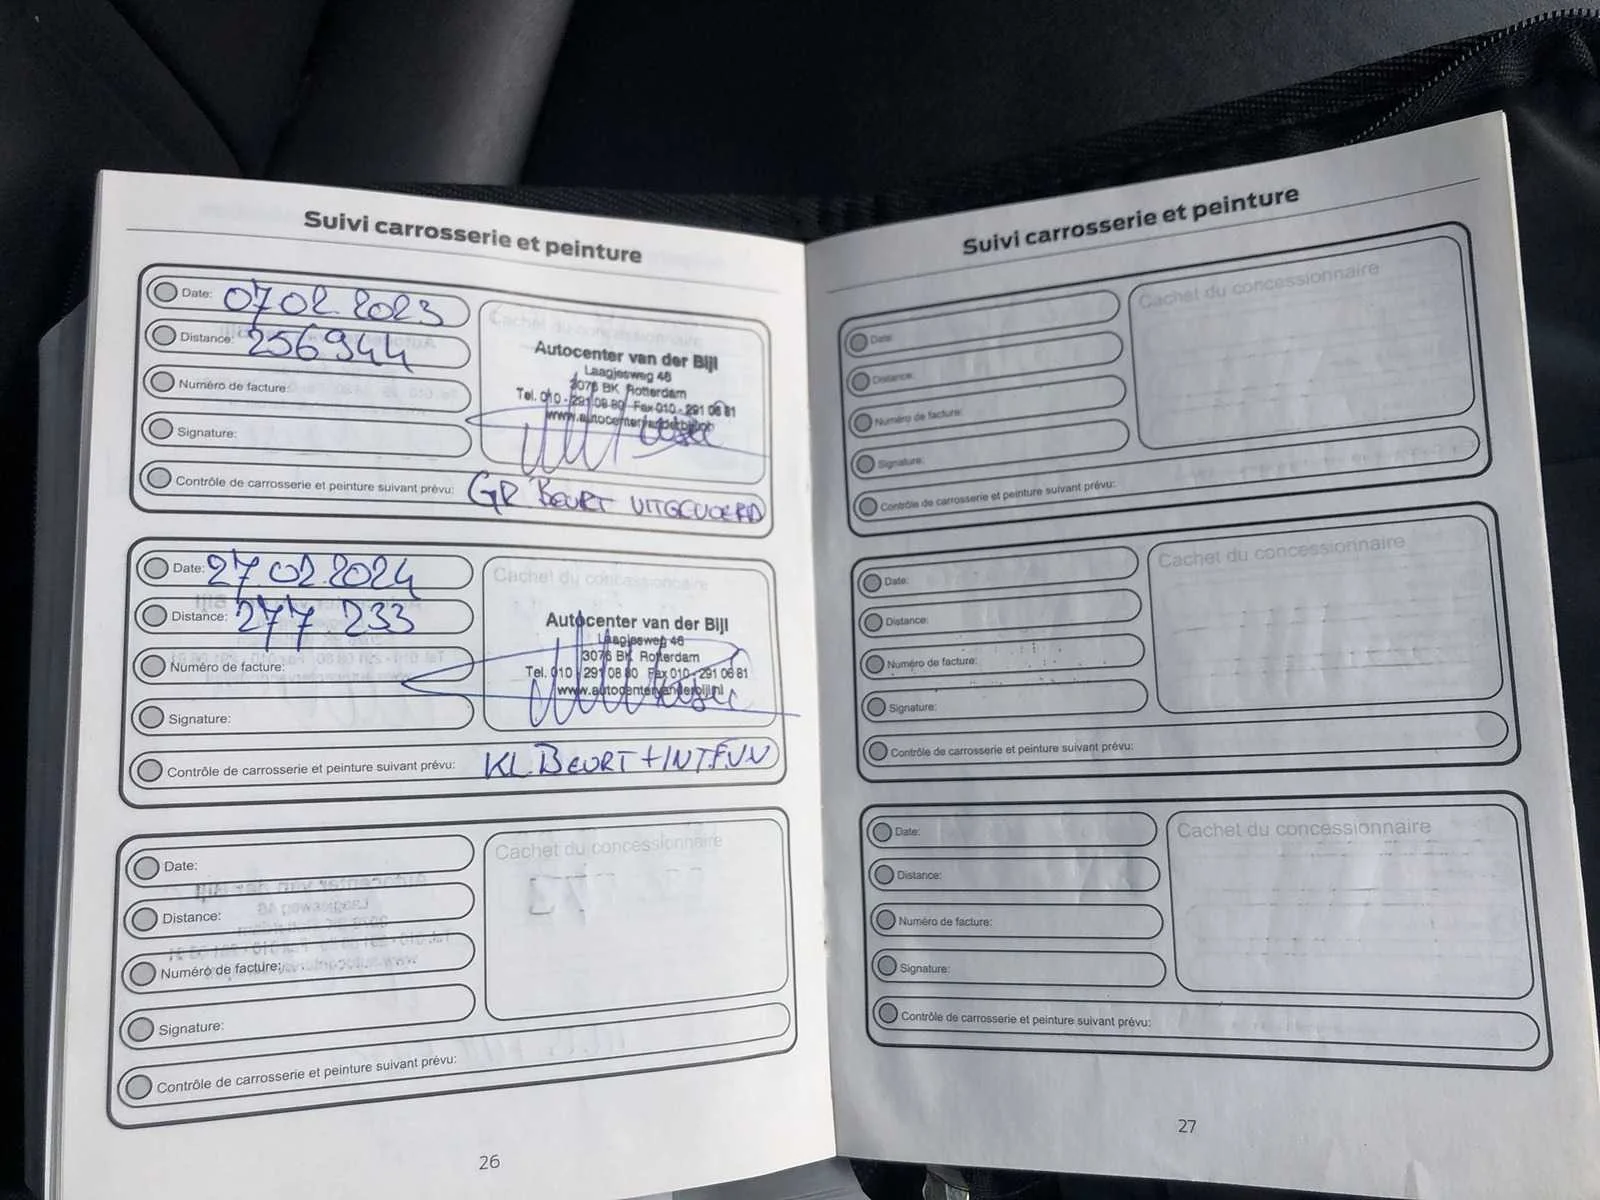 Suivi carrosserie et peinture
Date: 07.02.2023
Distance: 256944
Numéro de facture:
Signature:
Cachet du concessionnaire
Autocenter van der Bijl
Laagjesweg 46
3076 BK Rotterdam
Tel. 010 - 291 08 80 Fax 010 - 291 06 81
Contrôle de carrosserie et peinture suivant prévu: GR BEURT UITGEVOERD
Date: 27.02.2024
Distance: 277 233
Numéro de facture:
Signature:
Cachet du concessionnaire
Autocenter van der Bijl
Laagjesweg 46
3076 BK Rotterdam
Tel. 010 - 291 08 80 Fax 010 - 291 06 81
www.autocentervanderbijl.nl
Contrôle de carrosserie et peinture suivant prévu: KL.BEURT + INT.F.V.V
Date:
Distance:
Numéro de facture:
Signature:
Cachet du concessionnaire
Contrôle de carrosserie et peinture suivant prévu:
26
Suivi carrosserie et peinture
Date:
Distance:
Numéro de facture:
Signature:
Cachet du concessionnaire
Contrôle de carrosserie et peinture suivant prévu:
Date:
Distance:
Numéro de facture:
Signature:
Cachet du concessionnaire
Contrôle de carrosserie et peinture suivant prévu:
Date:
Distance:
Numéro de facture:
Signature:
Cachet du concessionnaire
Contrôle de carrosserie et peinture suivant prévu:
27